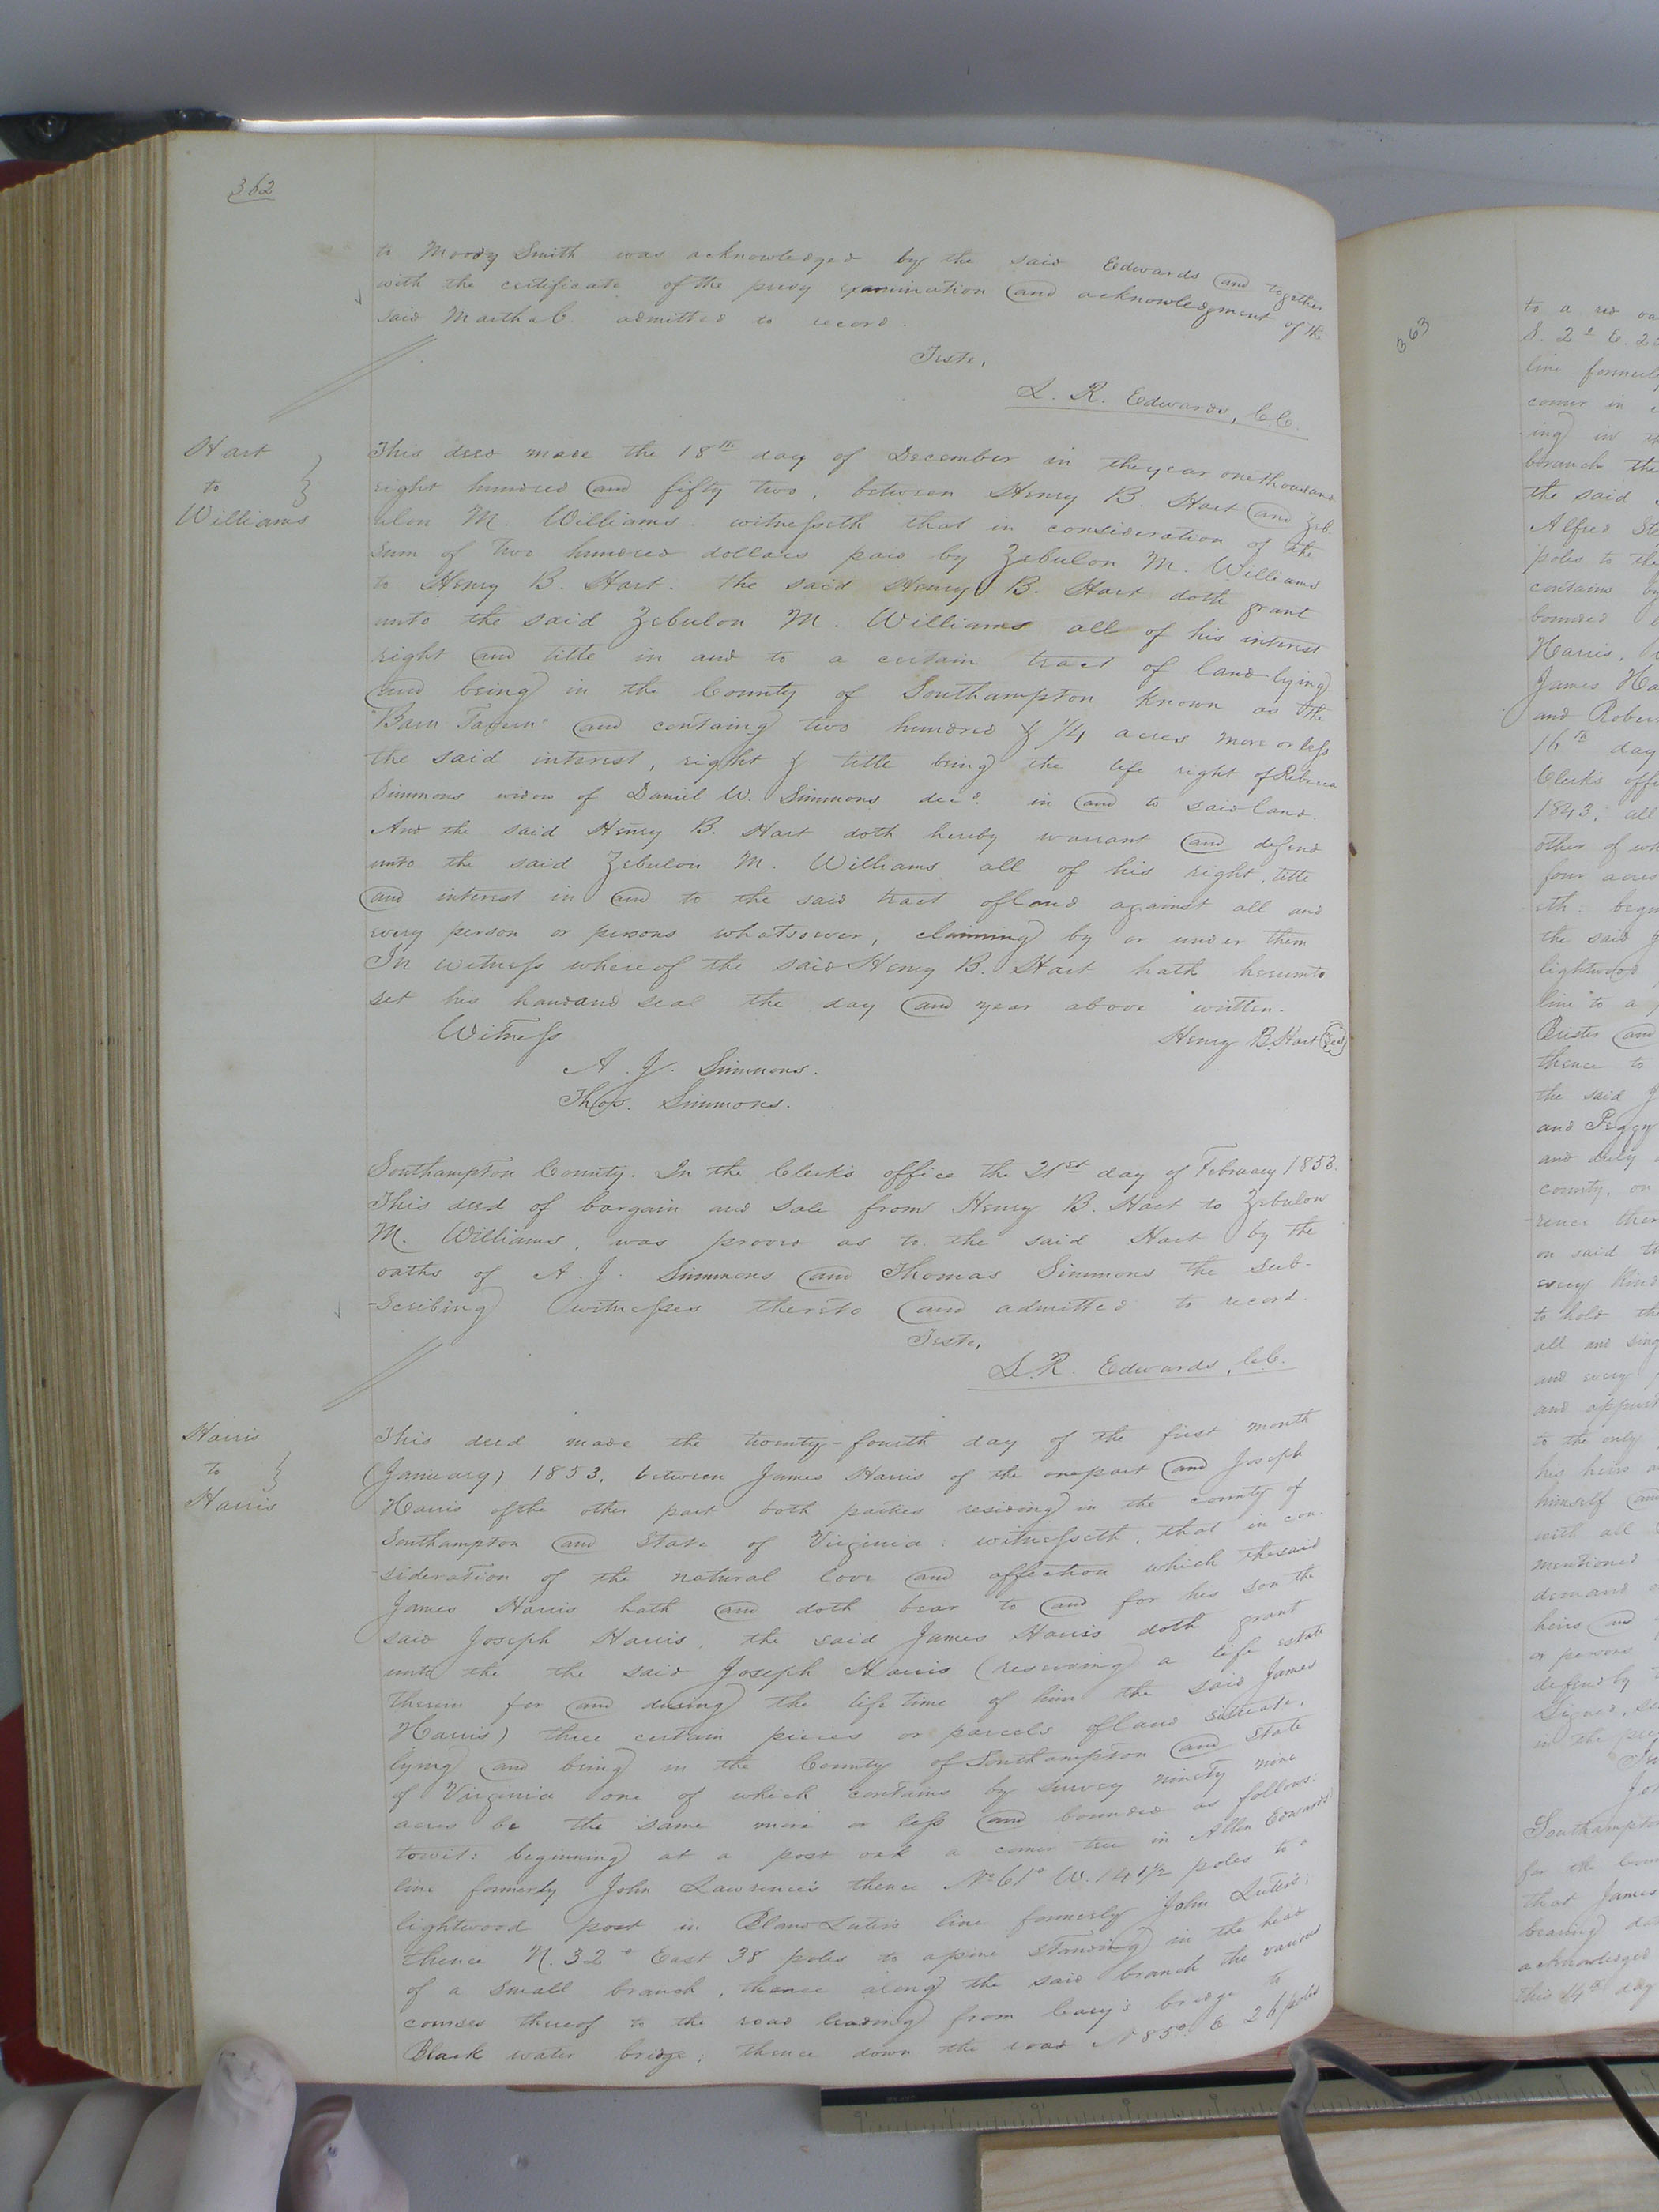 362
to Moody Smith was acknowledged by the said Edwards and together
with the certificate of the privy examination and acknowledgment of the
said Martha C. admitted to record.
Teste,
L. R. Edwards, C.C.
Hart
to
Williams
This deed made the 18th day of December in the year one thousand
eight hundred and fifty two, between Henry B. Hart and Zeb-
ulon M. Williams. witnesseth that in consideration of the
Sum of two hundred dollars paid by Zebulon M. Williams
to Henry B. Hart. the said Henry B. Hart doth grant
unto the said Zebulon M. Williams all of his interest
right and title in and to a certain tract of land lying
and being in the County of Southampton known as the
"Barn Tavern" and containg two hundred & 1/4 acres more or less
the said interest, right & title being the life right of Rebecca
Simmons widow of Daniel W. Simmons decd. in and to said land.
And the said Henry B. Hart doth hereby warrant and defend
unto the said Zebulon M. Williams all of his right, title
and interest in and to the said tract of land against all and
every person or persons whatsoever, claiming by or under them
In witness whereof the said Henry B. Hart hath hereunto
set his hand and seal the day and year above written.
Witness
Henry B. Hart Seal
A. J. Simmons.
Thos. Simmons.
Southampton County. In the Clerk's office the 21st day of February 1853.
This deed of bargain and sale from Henry B. Hart to Zebulon
M. Williams, was proved as to the said Hart by the
oaths of A. J. Simmons and Thomas Simmons the sub-
-scribing witnesses thereto and admitted to record.
Teste,
L. R. Edwards, C.C.
Harris
to
Harris
This deed made the twenty-fourth day of the first month
(January) 1853, between James Harris of the one part and Joseph
Harris of the other part both parties residing in the county of
Southampton and State of Virginia: witnesseth, that in con-
-sideration of the natural love and affection which the said
James Harris hath and doth bear to and for his son the
said Joseph Harris, the said James Harris doth grant
unto the the said Joseph Harris (reserving a life estate
therein for and during the life time of him the said James
Harris) three certain pieces or parcels of land situate,
lying and being in the County of Southampton and State
of Virginia one of which contains by survey ninety nine
acres be the same more or less and bounded as follows:
towit: beginning at a post oak a corner tree in Allen Edwards'
line formerly John Lawrence's thence N. 61° W. 141½ poles to a
lightwood post in Bland Luter's line formerly John Luter's;
thence N. 32° East 38 poles to a pine standing in the head
of a small branch, thence along the said branch the various
courses thereof to the road leading from Cary's bridge to
Black water bridge; thence down the road N 85° E 26 poles
363
to a red oa
S. 2° E. 2
line formerl
corner in
ing in th
branch the
the said
Alfred Ste
poles to the
contains by
bounded
Harris,
James Ha
and Rober
16th day
Clerk's offi
1843; all
other of wh
four acres
eth: begin
the said J
lightwood
line to a
Buster and
thence to
the said J
and Peggy
and duly
county, on
rence ther
on said th
every kind
to hold the
all and sing
and every
and appurt
to the only
his heirs a
himself and
with all
mentioned
demand
heirs and
or persons
defend by
Signed, se
in the pre
Southampton
for the
that James
bearing dat
acknowledged
this 14th day